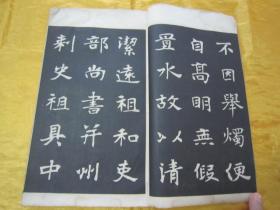 不因舉燭便
自高明無假
置水故以清
潔遠祖和吏
部尚書并州
刺史祖具中